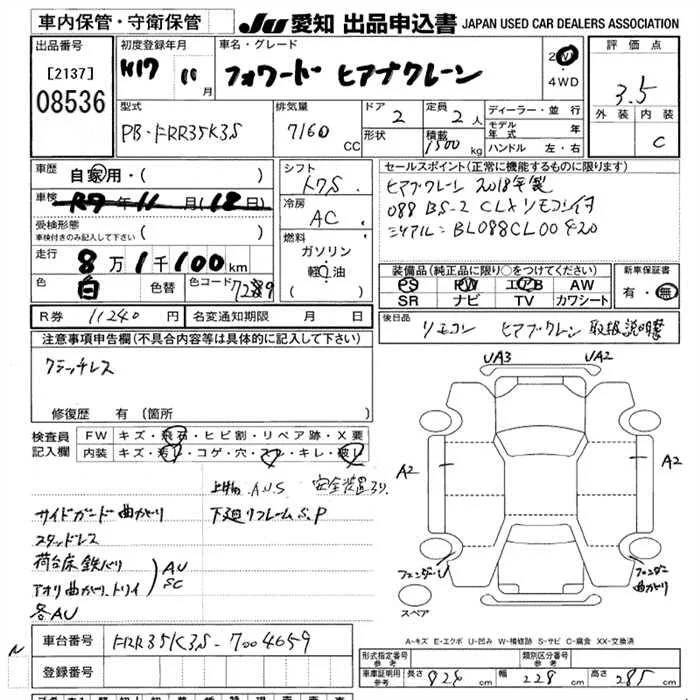 車内保管・守衛保管
JU 愛知 出品申込書 JAPAN USED CAR DEALERS ASSOCIATION
出品番号
[2137]
08536
初度登録年月
H17 11月
車名・グレード
フォワード ヒアブクレーン
2W
4WD
評価点
3.5
外装 内装
C
型式
PB-FRR35K3S
排気量
7160 CC
ドア
2
形状
定員
2 人
積載
1500 kg
ディーラー・並行
モデル年式 年
ハンドル 左・右
車歴
自家用・( )
車検
R7年11月(18日)
受検形態
車検付きのみ記入して下さい ( )
走行
8万1千100km
色
白
色替
色コード
シフト
冷房
AC
燃料
ガソリン
軽油
( )
セールスポイント(正常に機能するものに限ります)
ヒアブクレーン 2018年製
088 BS-2 CLX リモコン付
シリアル:BL088CL00420
装備品(純正品に限り○をつけてください)
PS PW エアB AW
SR ナビ TV カワシート
新車保証書
有・無
R券 11240 円
名変通知期限 月 日
後日品
リモコン ヒアブクレーン 取扱説明書
注意事項申告欄(不具合内容等は具体的に記入して下さい)
クラッチレス
修復歴 有(箇所
検査員記入欄
FW キズ・飛石・ヒビ割・リペア跡・X要
内装 キズ・汚れ・コゲ・穴・スレ・キレ・破レ
上物 AUS 安全装置
サイドガード曲がり
下廻りフレームS,P
スタッドレス
荷台床鉄バリ
アオリ曲がり
AU
SC
各AU
UA3 UA2
A2 A2
フェンダーU
フェンダー曲がり
スペア
A-キズ E-エクボ U-凹み W-補修跡 S-サビ C-腐食 XX-交換済
N
車台番号 FRR35K3S-7004659
登録番号
形式指定番号 参考
類別区分番号 参考
車庫証明用 参考
長さ 828 cm 幅 228 cm 高さ 285 cm